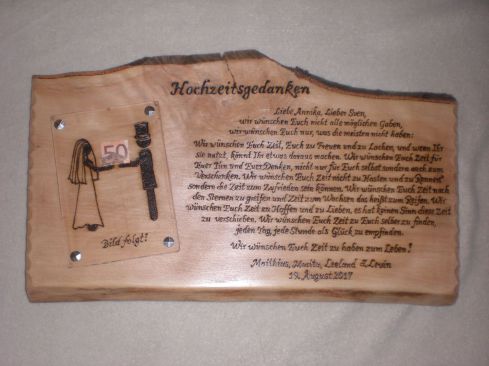 Hochzeitsgedanken
Liebe Annika, Lieber Sven,
wir wünschen Euch nicht alle möglichen Gaben,
wir wünschen Euch nur, was die meisten nicht haben:
Wir wünschen Euch Zeit, Euch zu Freuen und zu Lachen, und wenn Ihr
sie nutzt, könnt Ihr etwas daraus machen. Wir wünschen Euch Zeit für
Euer Tun und Euer Denken, nicht nur für Euch selbst sondern auch zum
Verschenken. Wir wünschen Euch Zeit nicht zu Hasten und zu Rennen
sondern die Zeit zum Zufrieden sein können. Wir wünschen Euch Zeit nach
den Sternen zu greifen und Zeit zum Wachsen das heißt zum Reifen. Wir
wünschen Euch Zeit zu Hoffen und zu Lieben, es hat keinen Sinn diese Zeit
zu verschieben. Wir wünschen Euch Zeit zu Euch selber zu finden,
jeden Tag, jede Stunde als Glück zu empfinden.
Wir wünschen Euch Zeit zu haben zum Leben!
Matthias, Moritz, Leeland & Levin
19. August 2017
50
Bild folgt!